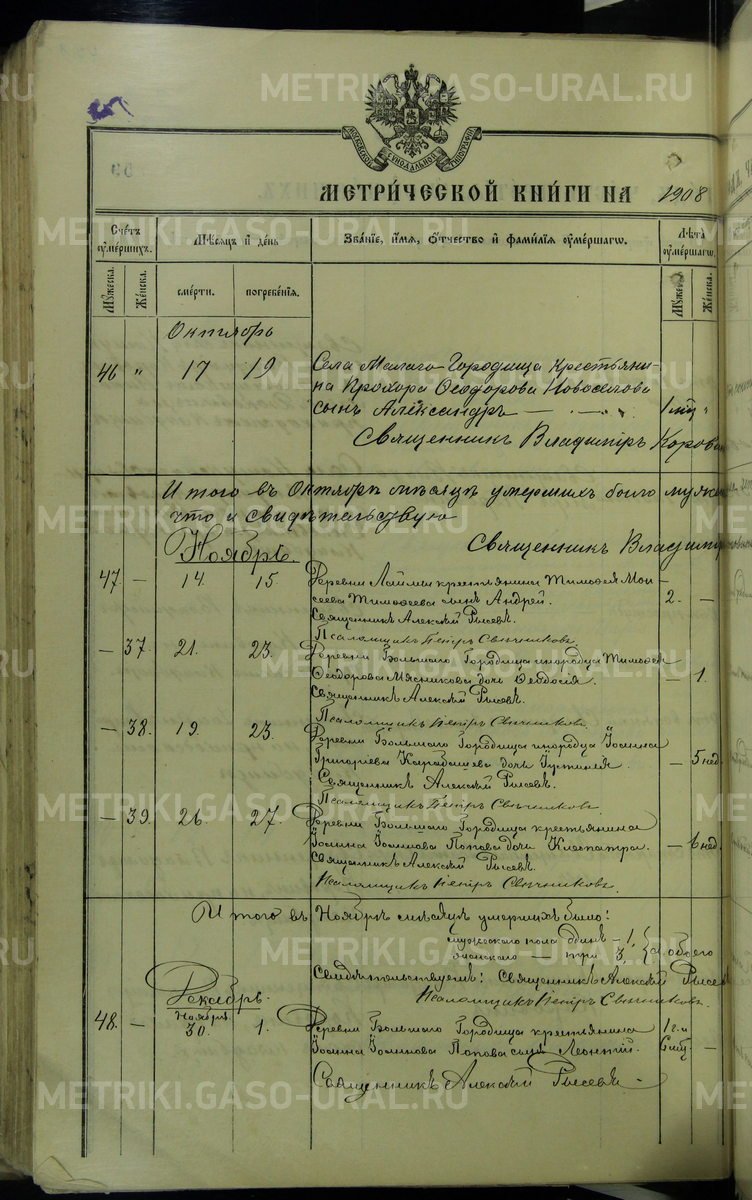 METRIKI.GASO-URAL.RU
МОСКОВСКОЙ СѴНОДАЛЬНОЙ ТИПОГРАФІИ
МЕТРИ́ЧЕСКОЙ КНИ́ГИ НА 1908
Счетъ ᲂумершихъ. Мѣсяцъ и день Званіе, имя, отчество и фамилія ᲂумершагѡ. Лѣта ᲂумершагѡ.
Мужеска. Женска. смерти. погребенія. Мужеска. Женска.
Октябрь
46 " 17 19 Села Малаго Городища крестьяни-
на Прохора Ѳеодорова Новоселова
сынъ Александръ — 1 мѣс "
Священникъ Владиміръ Коров
Итого въ Октябрѣ мѣсяцѣ умершихъ было мужс
что и свидѣтельствую
Священникъ Владимір
Ноябрь.
47 — 14. 15. Деревни Лаймы крестьянина Тимоѳея Мои-
сеева Тимоѳеева сынъ Андрей. 2. —
Священникъ Алексѣй Рысевъ.
Псаломщикъ Петръ Свѣчниковъ
— 37. 21. 23. Деревни Большаго Городища инородца Тимоѳея
Ѳеодорова Мясникова дочь Ѳеодосія. — 1.
Священникъ Алексѣй Рысевъ.
Псаломщикъ Петръ Свѣчниковъ
— 38. 19. 23. Деревни Большаго Городища инородца Іоанна
Григоріева дочь — 5 нед.
Священникъ Алексѣй Рысевъ.
Псаломщикъ Петръ Свѣчниковъ
— 39. 26. 27. Деревни Большаго Городища крестьянина
Іоанна Іоаннова Попова дочь Клеопатра. — 6 нед.
Священникъ Алексѣй Рысевъ.
Псаломщикъ Петръ Свѣчниковъ.
Итого въ Ноябрѣ мѣсяцѣ умершихъ было:
мужескаго пола одинъ — 1,
женскаго — три 3, обоего
Свидѣтельствуемъ: Священникъ Алексѣй Рысев
Псаломщикъ Петръ Свѣчниковъ.
Декабрь.
Ноября
48. — 30. 1. Деревни Большаго Городища крестьянина 1 г. и
Іоанна Іоаннова Попова сынъ Леонтій. 6 мѣс. —
Священникъ Алексѣй Рысевъ